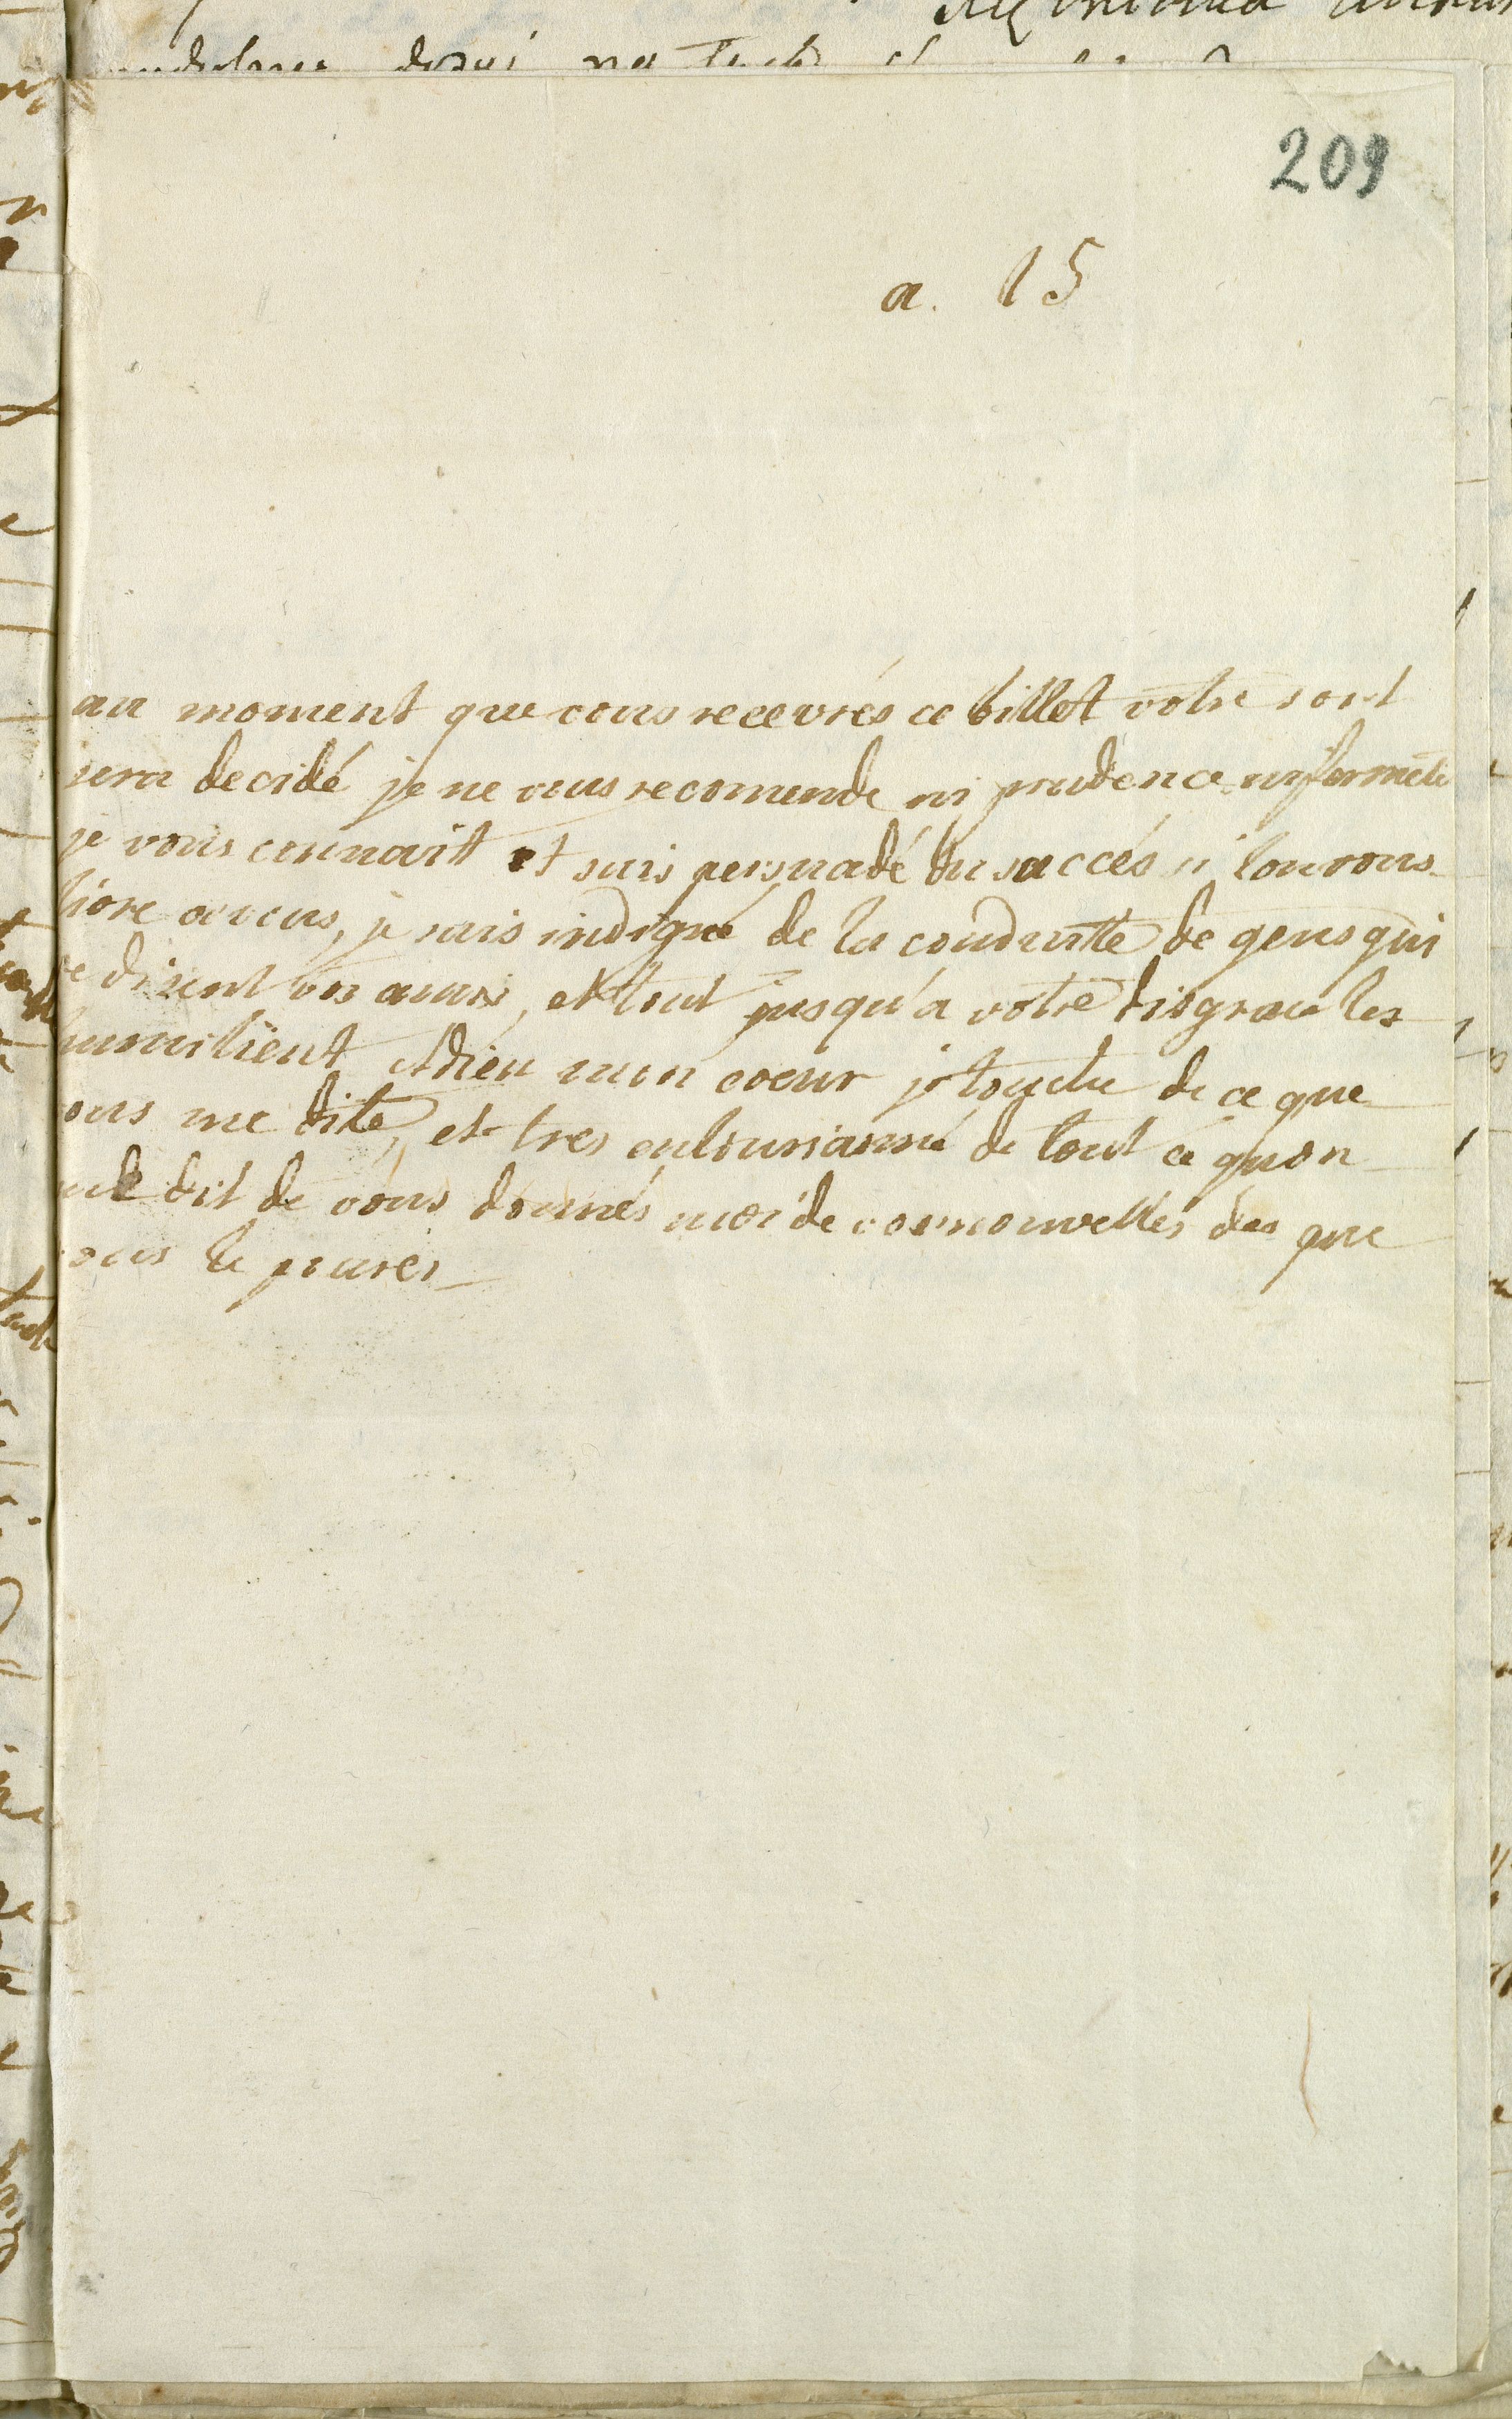 209
a. 15
au moment que vous recevrés ce billet votre sort
sera decidé je ne vous recomende ni prudence ni fermeté
je vous connait et suis persuadé du succés si lon vous
livre a vous, je suis indigné de la conduitte de gens qui
se disent vos amis, et tout jusqu'a votre disgrace les
humilient Adieu mon coeur je touche de ce que
vous me dite, et tres entousiasmé de tout ce quon
me dit de vous donnés moi de vos nouvelles des que
vous le pourés